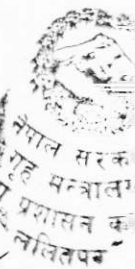 नेपाल सरक
गृह मन्त्राल
प्रशासन क
ललितपुर